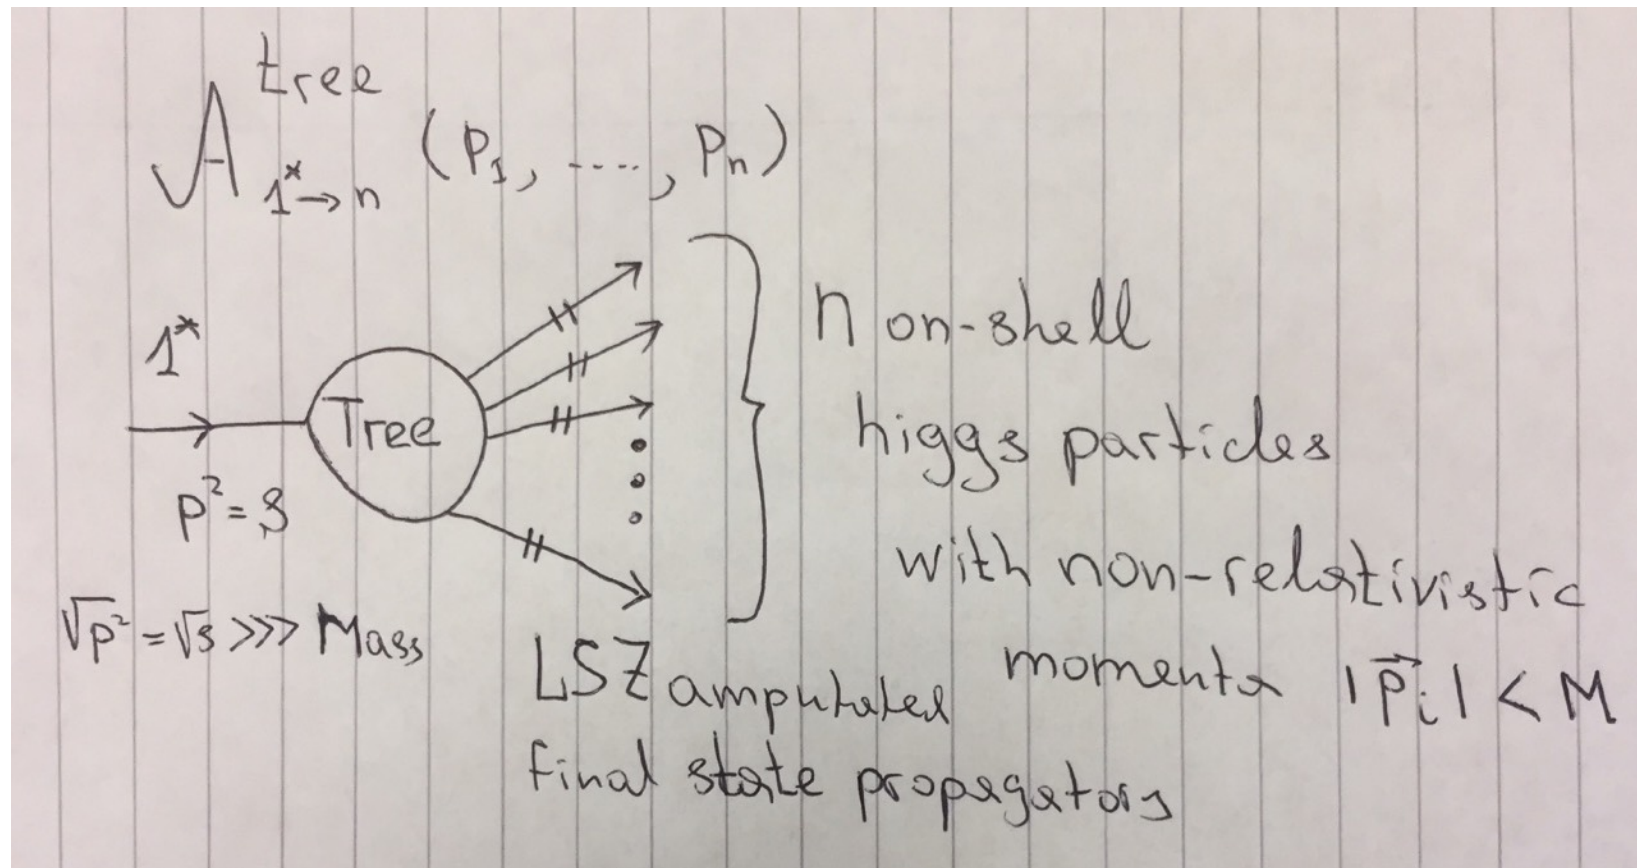 A^{tree}_{1^*→n} (p_1, ....., p_n)
1^*
Tree
p^2 = s
√p^2 = √s >>> Mass
n on-shell
higgs particles
with non-relativistic
momenta |p⃗_i| < M
LSZ amputated
final state propagators